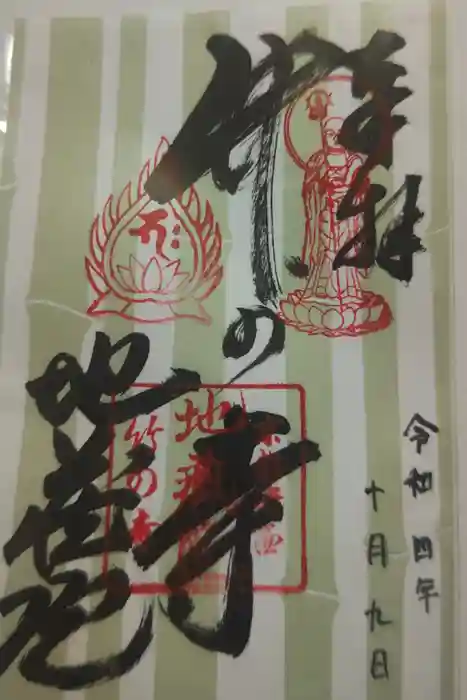 奉拝
令和四年
十月九日
竹の寺
地蔵院
地蔵
竹の寺